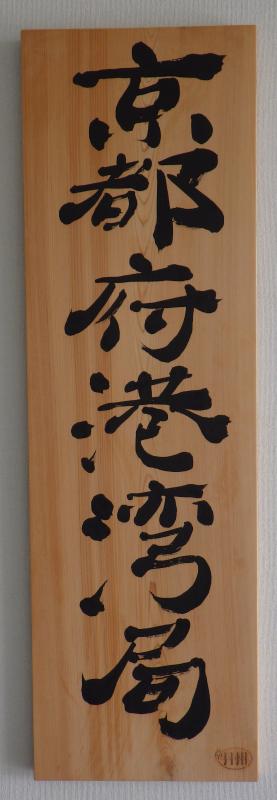 京都府港湾局